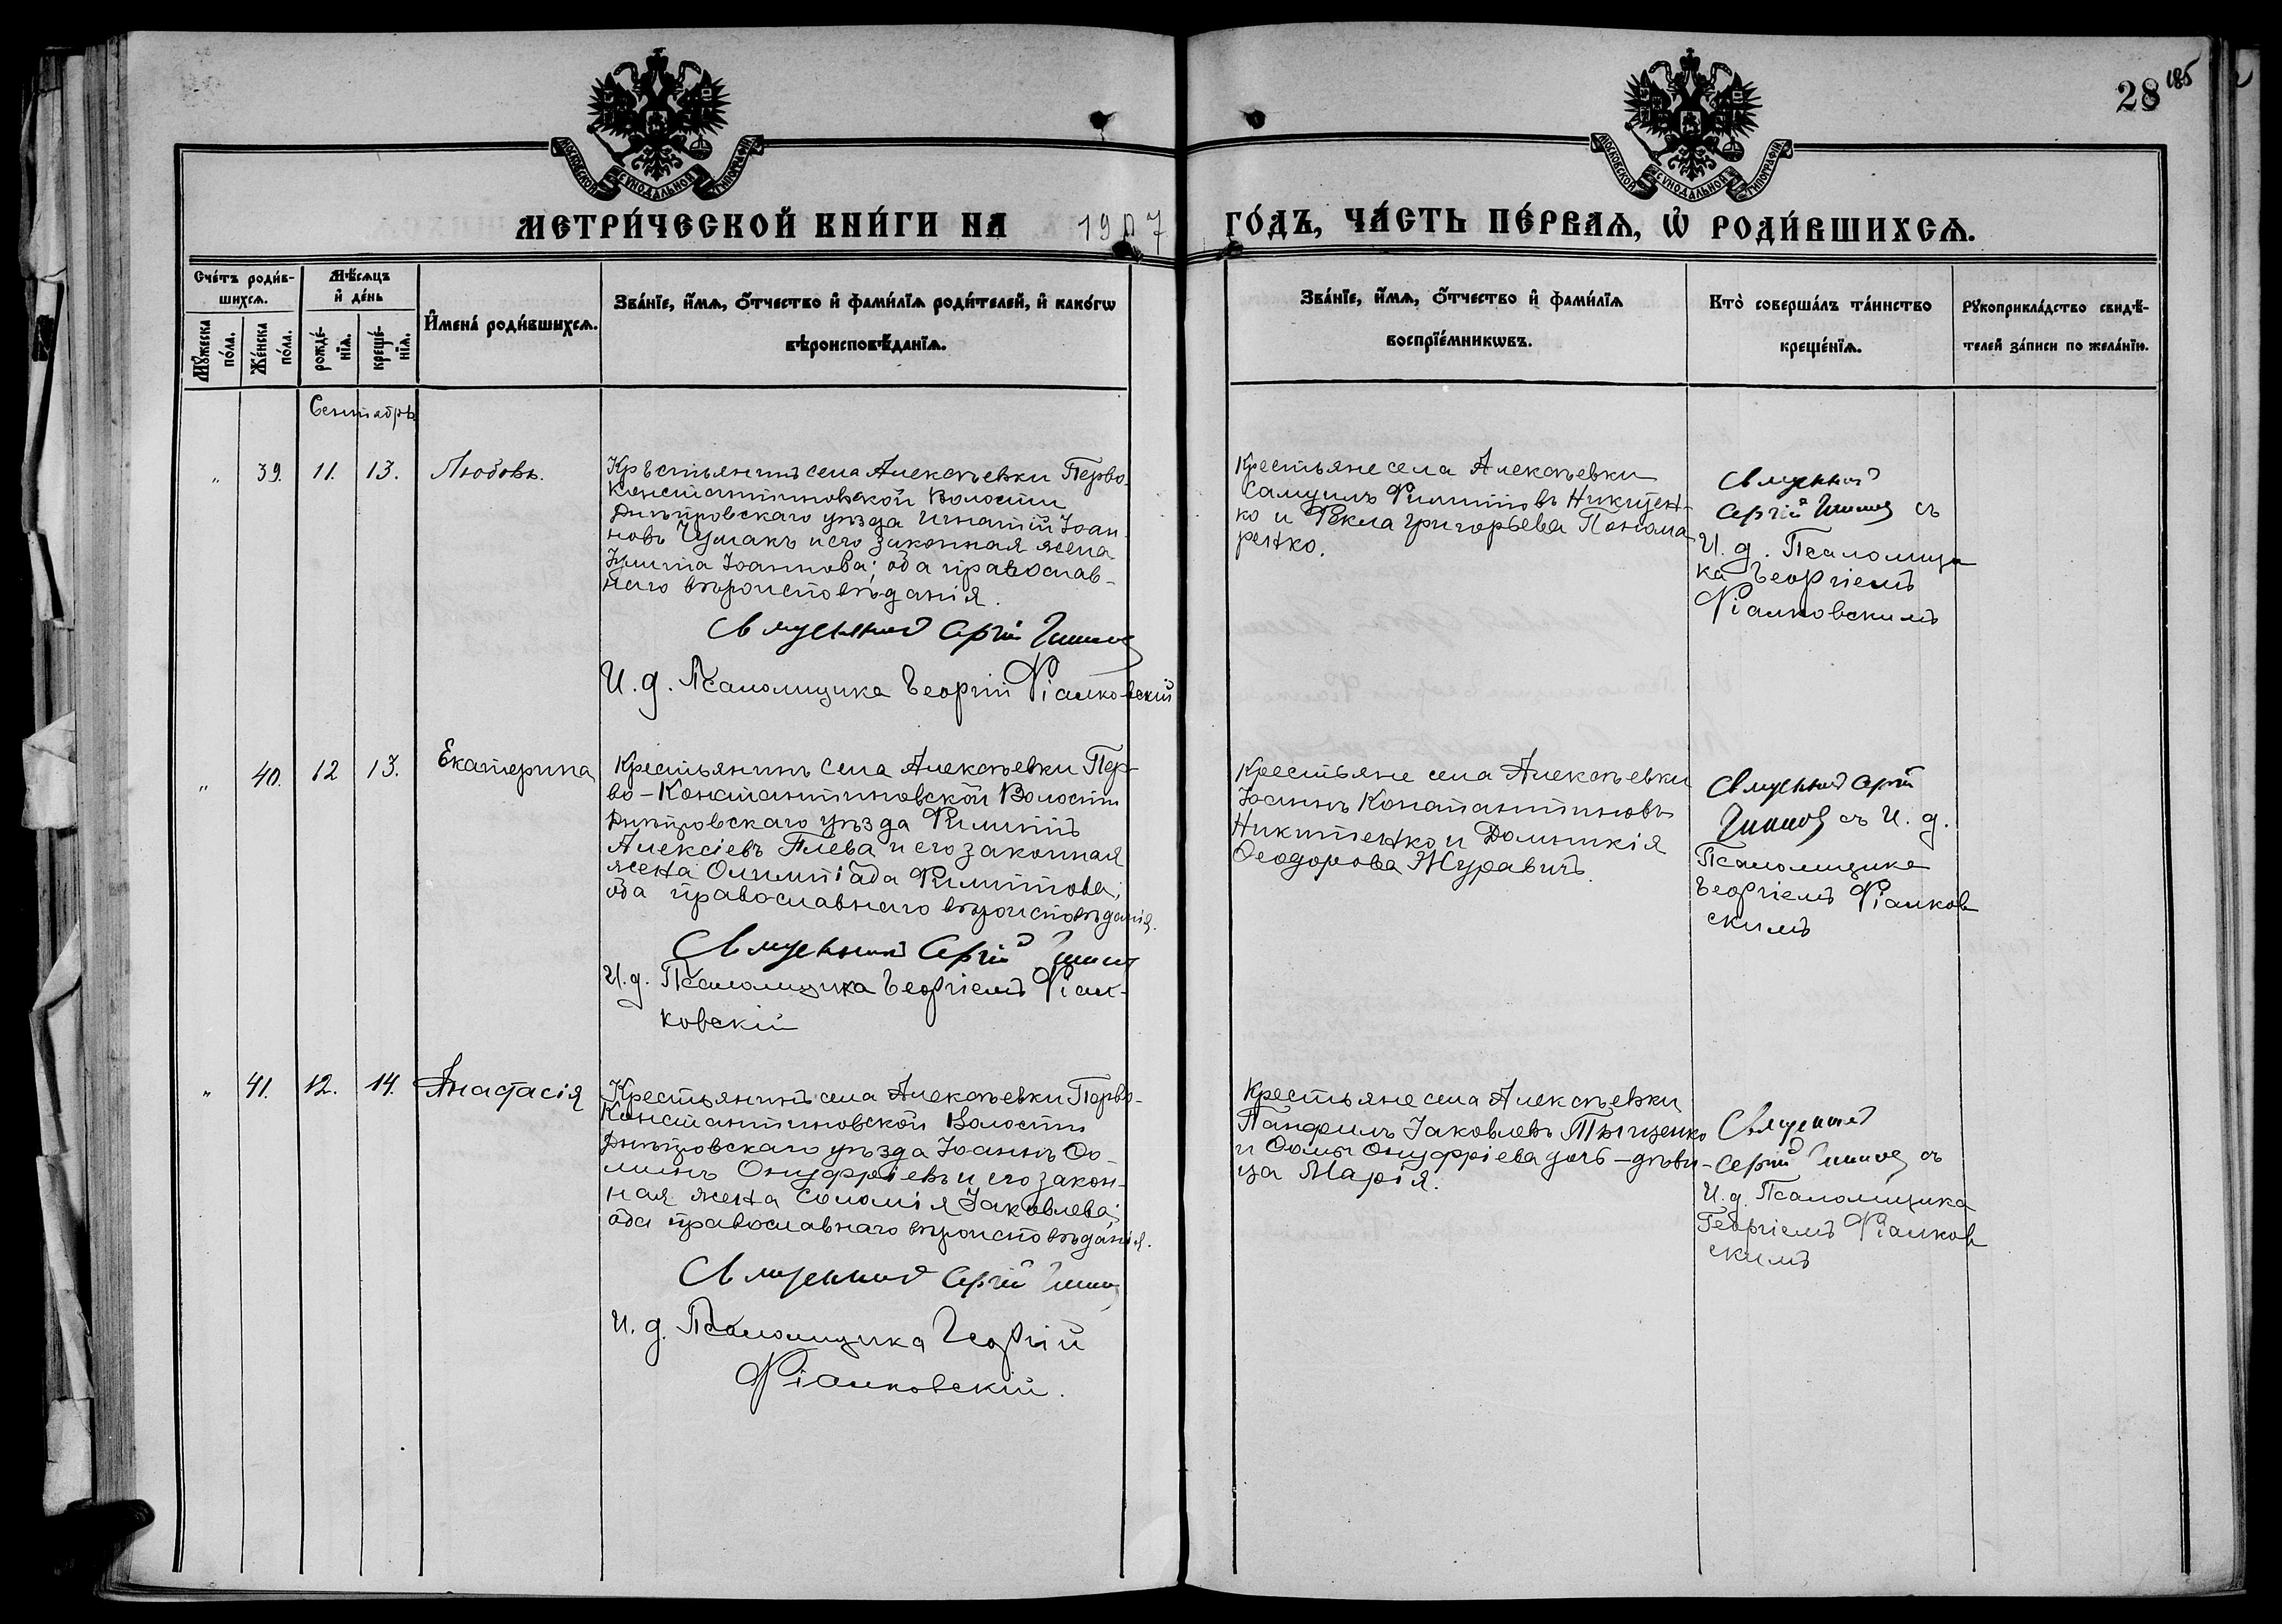 28 185
МОСКОВСКОЙ СѴНОДАЛЬНОЙ ТИПОГРАФІИ
МОСКОВСКОЙ СѴНОДАЛЬНОЙ ТИПОГРАФІИ
МЕТРИ́ЧЕСКОЙ КНИ́ГИ НА 1907
ГО́ДЪ, ЧА́СТЬ ПЕ́РВАѦ, Ѡ҆ РОДИ́ВШИХСѦ.
Сче́тъ роди́в-
шихсѧ.
Мꙋ́жеска по́ла.
Же́нска по́ла.
Мѣ́сѧцъ
и҆ де́нь
рожде́-нїѧ.
креще́-нїѧ.
И҆мена̀ роди́вшихсѧ.
Зва́нїе, и҆́мѧ, ѻ҆́тчество и҆ фами́лїѧ роди́телей, и҆ како́гѡ
вѣроисповѣ́данїѧ.
Зва́нїе, и҆́мѧ, ѻ҆́тчество и҆ фами́лїѧ
воспрїе́мникѡвъ.
Кто̀ соверша́лъ та́инство
креще́нїѧ.
Рꙋкоприкла́дство свидѣ́-
телей за́писи по жела́нїю.
Сентябрь
" 39. 11. 13. Любовь.
Крѣстьянинъ села Алексѣевки Перво-
Константиновской Волости
Днѣпровскаго уѣзда Игнатій Іоан-
новъ Чумакъ и его законная жена
Іоаннова; оба православ-
наго вѣроисповѣданія.
Священникъ Сергій
И. д. Псаломщика Георгій Фіалковскій
Крестьяне села Алексѣевки
Самуилъ Филипповъ Никитен-
ко и Фекла Григорьева Понома-
ренко.
Священникъ
Сергій съ
И. д. Псаломщи
ка Георгіемъ
Фіалковскимъ
" 40. 12 13. Екатерина
Крестьянинъ села Алексѣевки Пер-
во-Константиновской Волости
Днѣпровскаго уѣзда Филиппъ
Алексіевъ Плева и его законная
жена Олимпіада Филиппова;
оба православнаго вѣроисповѣданія.
Священникъ Сергій
И. д. Псаломщика Георгіемъ Фіал-
ковскій
Крестьяне села Алексѣевки
Іоаннъ Константиновъ
Никитенко и Домникія
Ѳеодорова Журавичъ.
Священникъ Сергій
съ И. д.
Псаломщика
Георгіемъ Фіалков
скимъ
" 41. 12. 14. Анастасія
Крестьянинъ села Алексѣевки Перво-
Константиновской Волости
Днѣпровскаго уѣзда Іоаннъ Ѳо-
минъ Онуфріевъ и его закон-
ная жена Соломія Іаковлева;
оба православнаго вѣроисповѣданія.
Священникъ Сергій
И. д. Псаломщика Георгій
Фіалковскій.
Крестьяне села Алексѣевки
Панфилъ Іаковлевъ Тыщенко
и Ѳомы Онуфріева дочь-дѣви-
ца Марія.
Священникъ
Сергій съ
И. д. Псаломщика
Георгіемъ Фіалков
скимъ